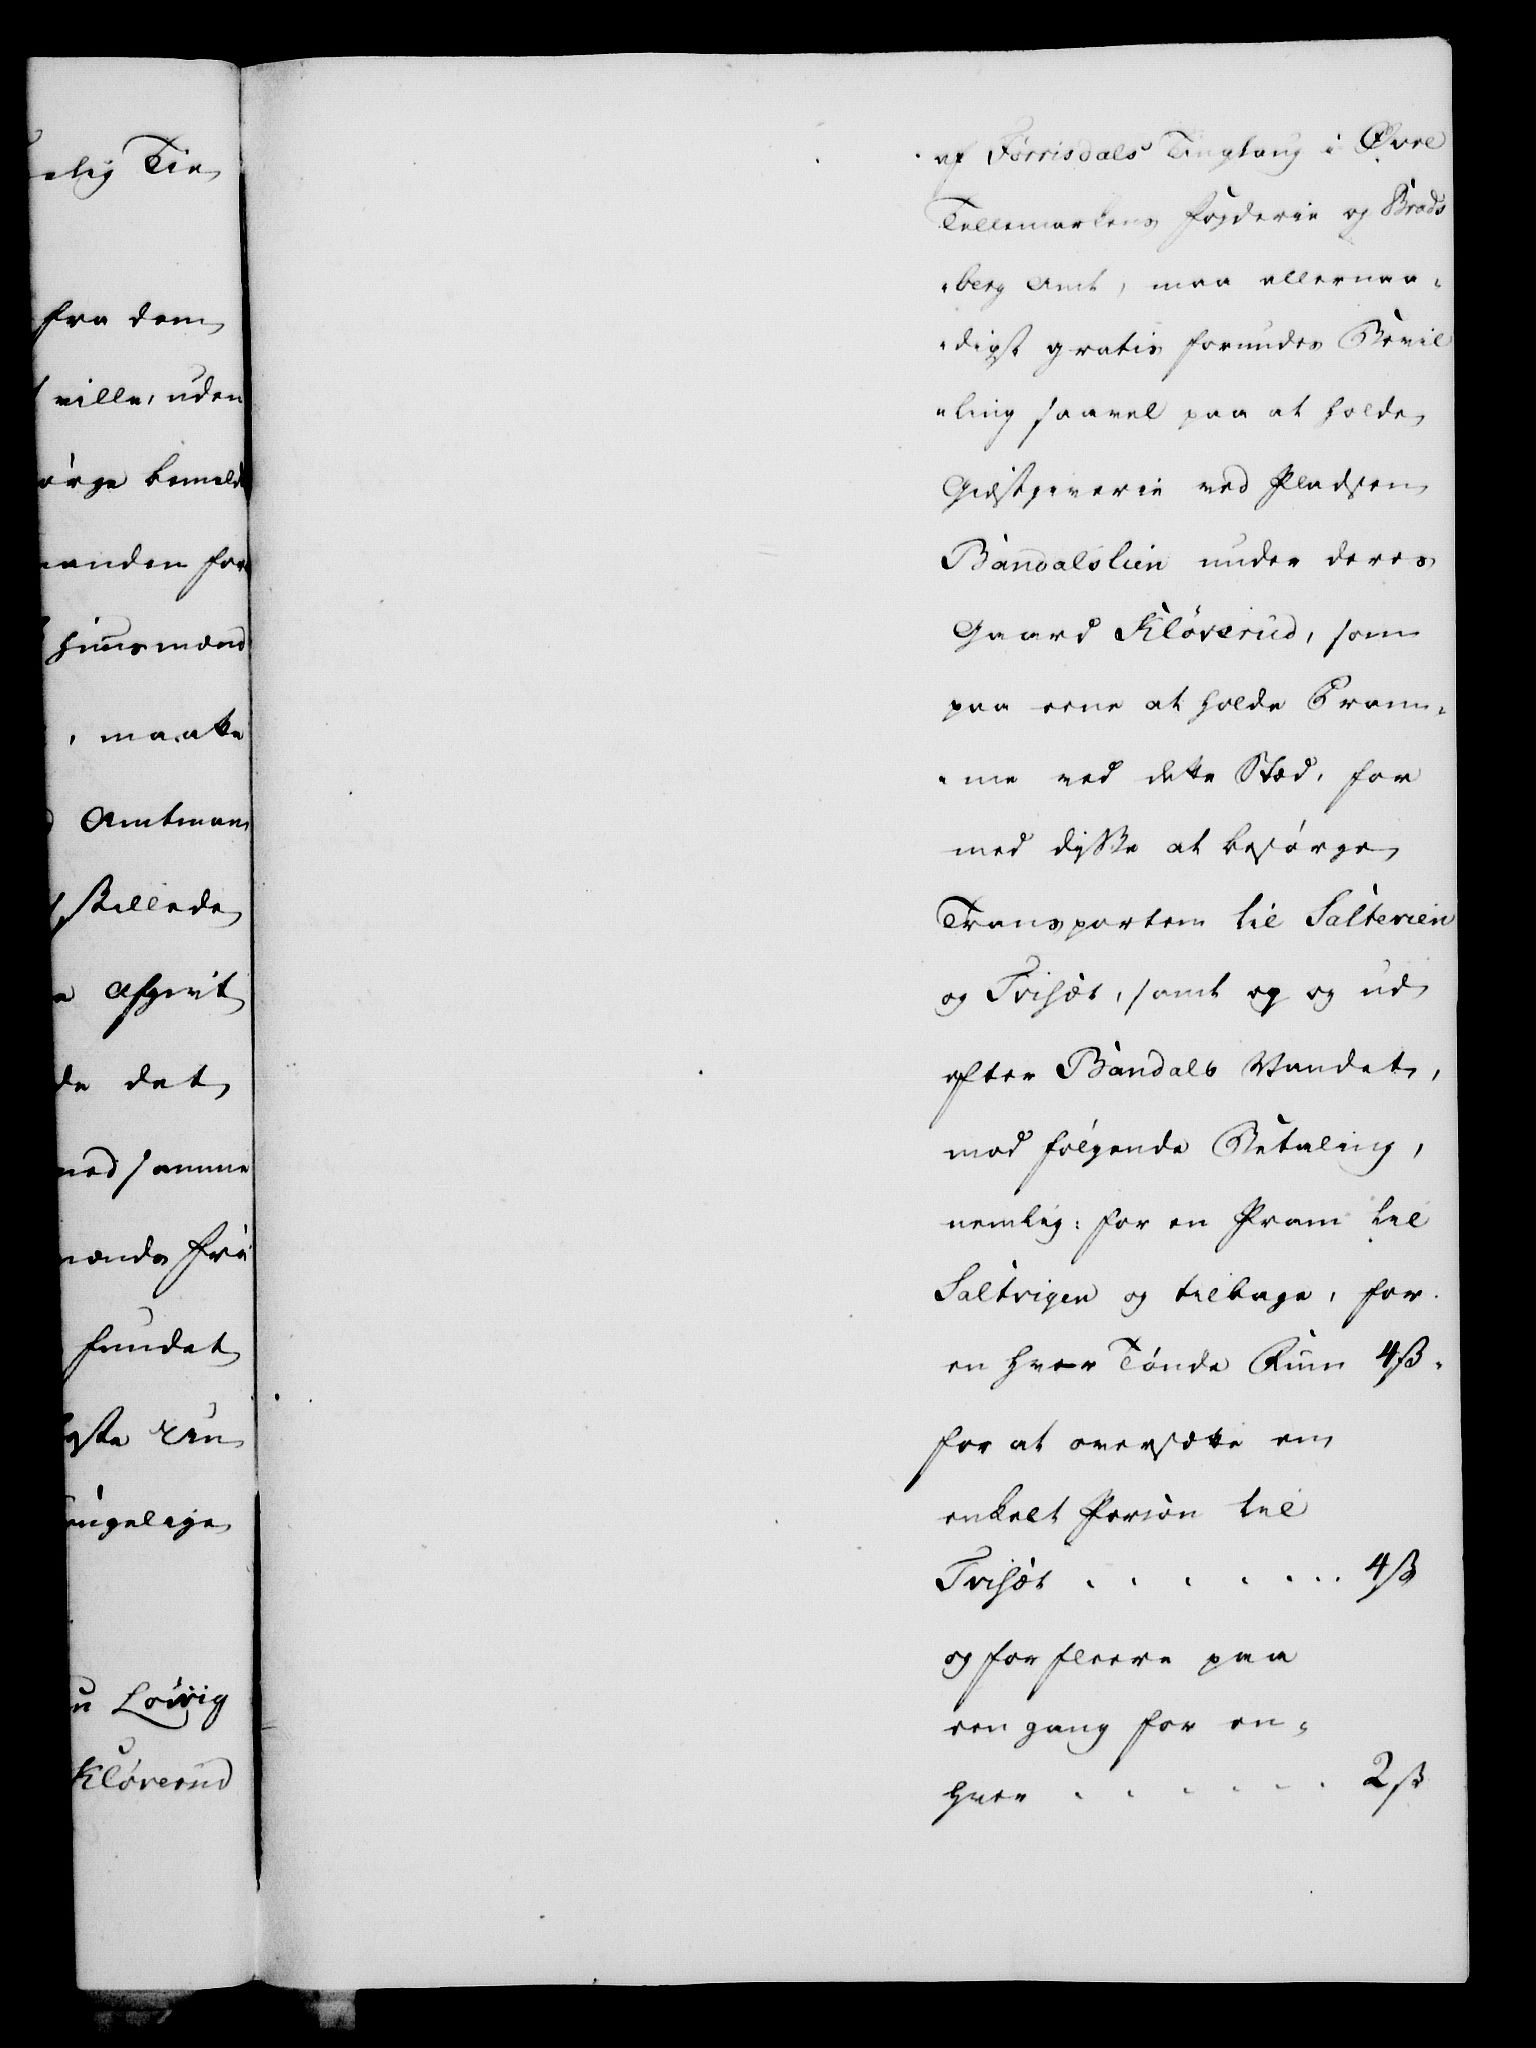 elig Tie
fra dem
ville, uden
ørge bemeld
anden for
Huusmænd
, maatte
Amtman
stillede
Afgivt
de det
med samme
mands frü
fundet
ste
tingelige
Løvig
Kløverud
af Förrisdals Tinglaug i Øvre
Tellemarkens Fogderie og Brads
berg Amt, maa allernaa-
digst gratis forundes Bevil
ling saavel paa at holde
Giæstgiverie ved Pladsen
Bandalslien under deres
Gaard Kløverud, som
paa eene at holde Pram-
me ved dette Stæd, for
med disse at besørge
Transporten til Saltevien
og Tvisæt, samt op og ud
efter Bandals Vandet,
mod følgende Betaling,
nemlig: for en Pram til
Saltvigen og tilbage, for
en hver Tønde Rüm 4 ß.
for at oversætte en
enkelt Person til
Tvisæt . . . . . . . 4 ß
og for fleere paa
een gang for en-
hver . . . . . . 2 ß